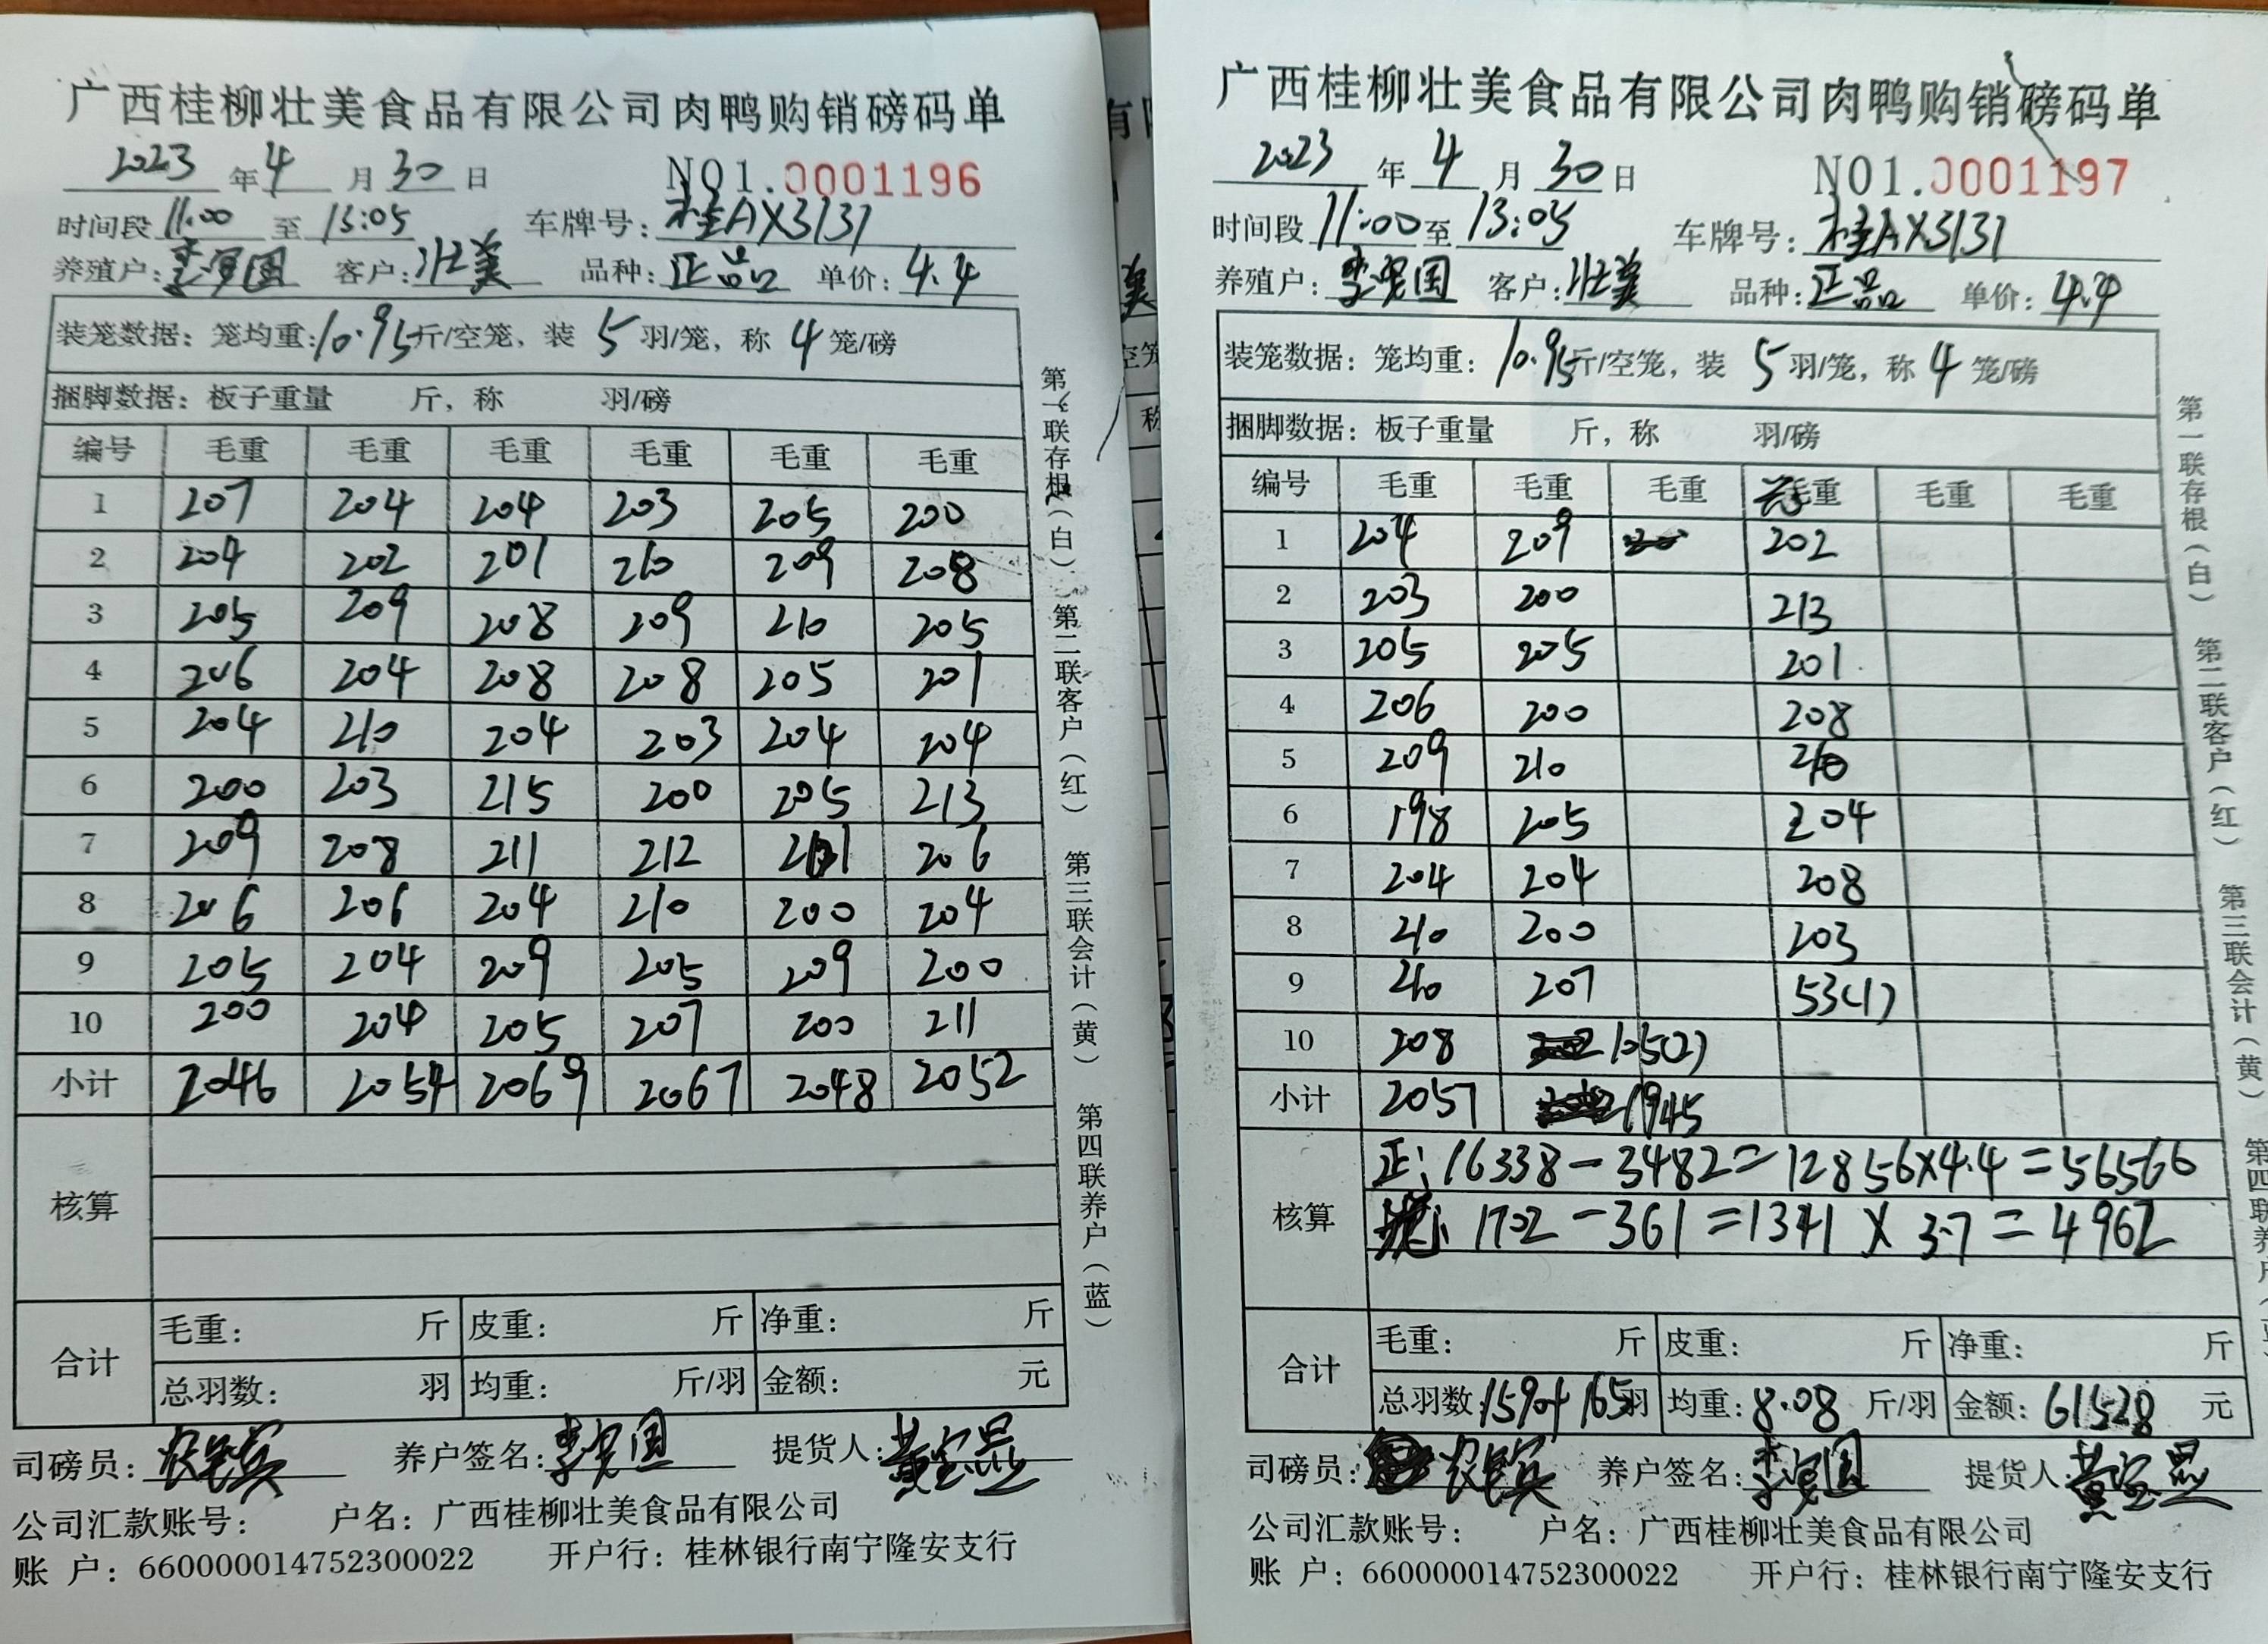 广西桂柳壮美食品有限公司肉鸭购销磅码单
2023年4月30日 NO1.0001196
时间段11:00至13:05 车牌号:桂AX3131
养殖户:李宪国 客户:壮美 品种:正品 单价:4.4
装笼数据:笼均重:10.95斤/空笼,装5羽/笼,称4笼/磅
捆脚数据:板子重量 斤,称 羽/磅
编号 毛重 毛重 毛重 毛重 毛重 毛重
1 207 204 204 203 205 200
2 204 202 201 210 209 208
3 205 209 208 209 210 205
4 206 204 208 208 205 201
5 204 210 204 203 204 204
6 200 203 215 200 205 213
7 209 208 211 212 201 206
8 206 206 204 210 200 204
9 205 204 209 205 209 200
10 200 204 205 207 200 211
小计 2046 2054 2069 2067 2048 2052
核算
合计 毛重: 斤 皮重: 斤 净重: 斤
总羽数: 羽 均重: 斤/羽 金额: 元
司磅员: 养户签名:李宪国 提货人:黄宝昆
公司汇款账号: 户名:广西桂柳壮美食品有限公司
账 户:660000014752300022 开户行:桂林银行南宁隆安支行
第一联存根(白) 第二联客户(红) 第三联会计(黄) 第四联养户(蓝)
广西桂柳壮美食品有限公司肉鸭购销磅码单
2023年4月30日 NO1.0001197
时间段11:00至13:05 车牌号:桂AX3131
养殖户:李宪国 客户:壮美 品种:正品 单价:4.4
装笼数据:笼均重:10.95斤/空笼,装5羽/笼,称4笼/磅
捆脚数据:板子重量 斤,称 羽/磅
编号 毛重 毛重 毛重 毛重 毛重 毛重
1 204 209 202
2 203 200 213
3 205 205 201
4 206 200 208
5 209 210 210
6 198 205 204
7 204 204 208
8 210 200 203
9 210 207 53(1)
10 208 105(2)
小计 2057 1945
核算 正:16338-3482=12856×4.4=56566
1702-361=1341×3.7=4962
合计 毛重: 斤 皮重: 斤 净重: 斤
总羽数:1590+165羽 均重:8.08斤/羽 金额:61528元
司磅员: 养户签名:李宪国 提货人:黄宝昆
公司汇款账号: 户名:广西桂柳壮美食品有限公司
账 户:660000014752300022 开户行:桂林银行南宁隆安支行
第一联存根(白) 第二联客户(红) 第三联会计(黄) 第四联养户